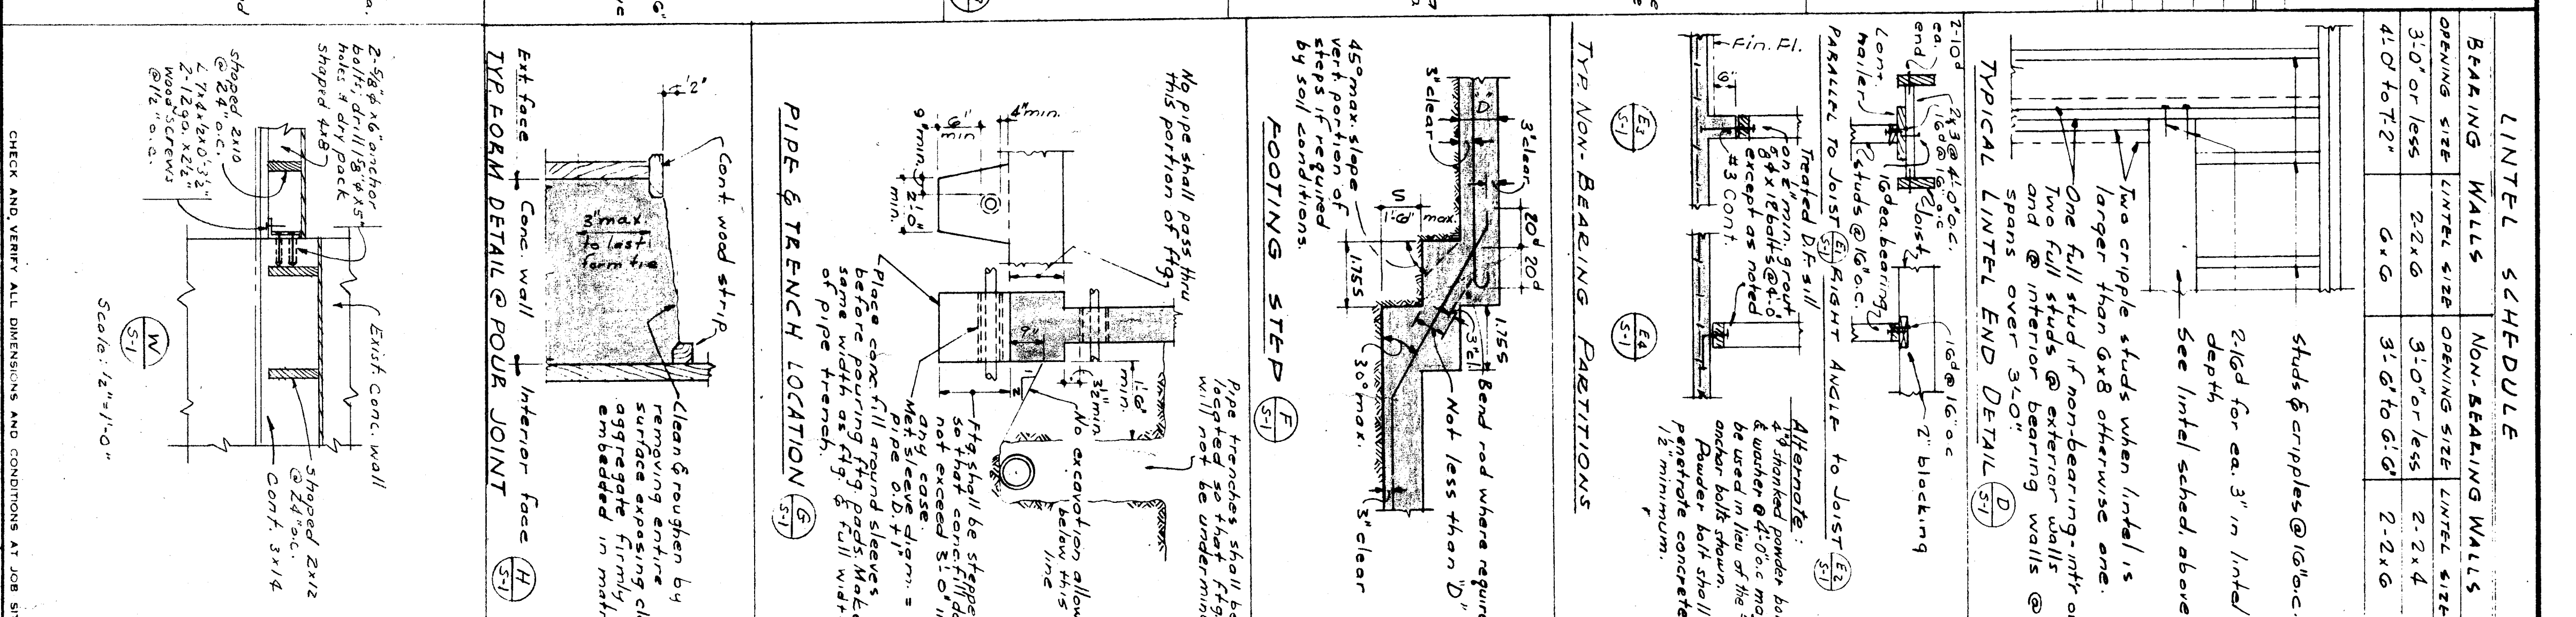 LINTEL SCHEDULE
BEARING WALLS
NON-BEARING WALLS
OPENING SIZE LINTEL SIZE OPENING SIZE LINTEL SIZE
3'-0" or less 2-2x6 3'-0" or less 2-2x4
4'-0" to 7'-2" 6x6 3'-6" to 6'-6" 2-2x6
studs & cripples @ 16" o.c.
2-16d for ea. 3" in lintel
depth
See lintel sched. above
Two cripple studs when lintel is
larger than 6x8 otherwise one.
One full stud if non-bearing-int'r or
Two full studs @ exterior walls
and @ interior bearing walls @
spans over 3'-0".
TYPICAL LINTEL END DETAIL
D
S-1
2-10d
ea.
end
2x3 @ 4'-0" o.c.
16d @ 16" o.c.
Joist
16d @ 16" o.c.
2" blocking
Cont.
nailer
16d ea. bearing
studs @ 16" o.c.
PARALLEL TO JOIST
E1
S-1
RIGHT ANGLE to JOIST
E2
S-1
Fin. Fl.
6"
Treated D.F. sill
on 2" min. grout
5/8"φ x 12" bolts @ 4'-0"
except as noted
#3 Cont.
Alternate:
1/4"φ shanked powder
& washer @ 4'-0" o.c. ma
be used in lieu of the
anchor bolts shown.
Powder bolt shall
penetrate concrete
1 1/2" minimum.
E3
S-1
E4
S-1
TYP. NON-BEARING PARTITIONS
3" clear
20d 20d
1.75S
"D"
3" clear
3" cl.
Bend rod where requir
Not less than "D"
S
1'-6" max.
45° max. slope
vert portion of
steps if required
by soil conditions.
1.75S
30° max.
3" clear
FOOTING STEP
F
S-1
No pipe shall pass thru
this portion of ftg.
Pipe trenches shall be
located so that ftg.
will not be undermin
4" min.
6"
min
9" min.
2'-0"
min.
9"
1'-6"
min.
3 1/2" min.
2
1
No excavation allow
below this
line
Ftg. shall be steppe
so that conc. fill do
not exceed 3'-0" i
any case.
Met. sleeve diam. =
pipe O.D. + 1"
Place conc. fill around sleeves
before pouring ftg. pads. Mak
same width as ftg. & full widt
of pipe trench.
PIPE & TRENCH LOCATION
G
S-1
Cont wood strip
1/2"
3" max.
to last
form tie
Clean & roughen by
removing entire
surface exposing cl
aggregate firmly
embedded in matr
Ext. face
Conc. wall
Interior face
TYP. FORM DETAIL @ POUR JOINT
H
S-1
Exist conc. wall
2-5/8"φ x 6" anchor
bolts; drill 1 5/8"φ x 5"
holes & dry pack
shaped 4x8
shaped 2x10
@ 24" o.c.
L 7x4x1/2x0'-3 1/2"
2-12ga. x 2 1/2"
wood screws
@ 1 1/2" o.c.
shaped 2x12
@ 24" o.c.
Cont. 3x14
W
S-1
Scale: 1/2"=1'-0"
CHECK AND VERIFY ALL DIMENSIONS AND CONDITIONS AT JOB SIT